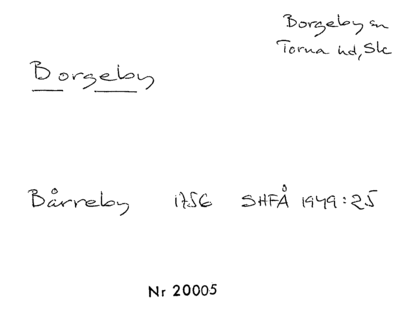 Borgeby sn
Torna hd, Sk
Borgeby
Bårreby 1756 SHFÅ 1949:25
Nr 20005